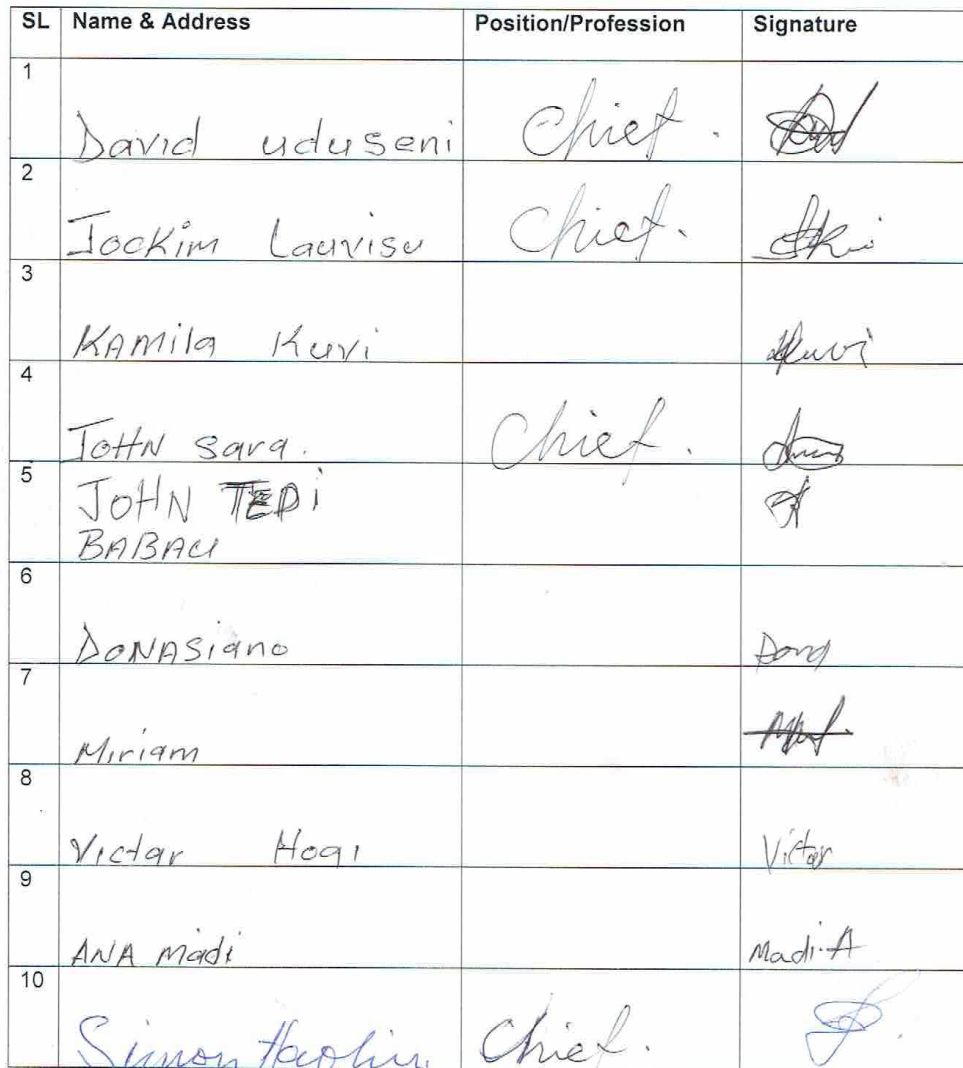 SL Name & Address Position/Profession Signature
1
David uduseni Chief.
2
Jockim Lauvisu Chief.
3
KAMila Kuvi Kuvi
4
JOHN Sara. Chief.
5
JOHN TEDi
BABAU
6
DONASiano Dona
7
Miriam
8
Victar Hogi Victar
9
ANA Madi Madi-A
10
Simon Chief.